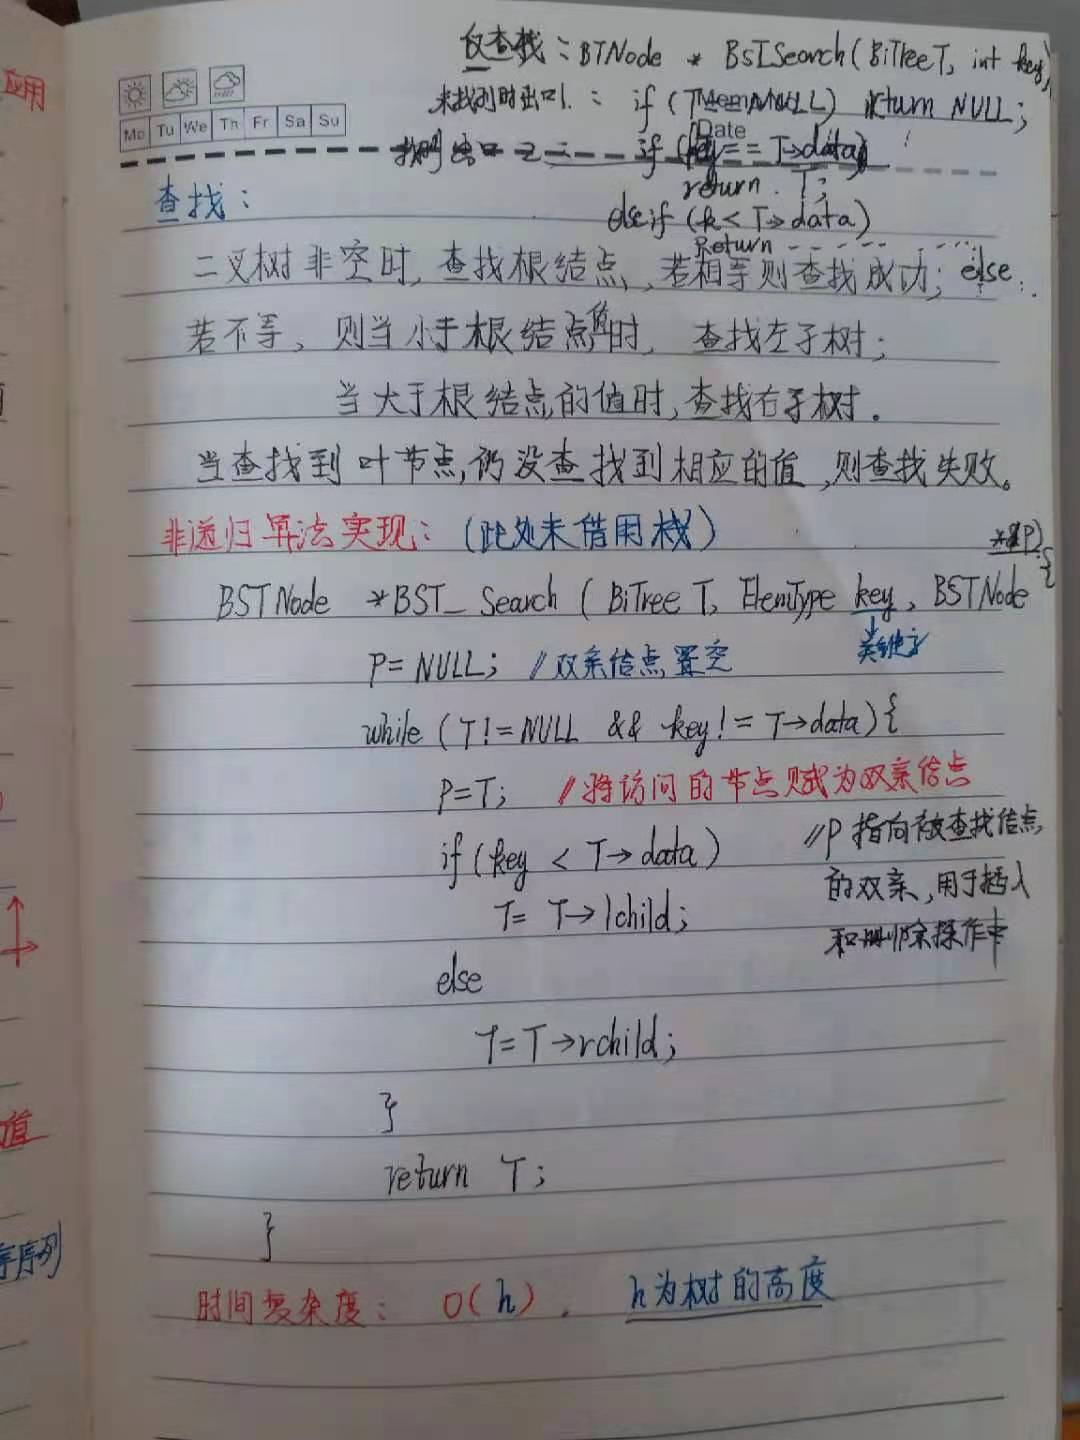 应用
仅查找：BTNode * BSTSearch(BiTree T, int key)
未找到时出口1：if (T==NULL) return NULL;
Mo Tu We Th Fr Sa Su
Memo No.
Date
出口2：if (key == T→data)
return T;
查找：
else if (k < T→data)
Return - - - - - - -
二叉树非空时，查找根结点，若相等则查找成功； else
若不等，则当小于根结点值时，查找左子树；
当大于根结点的值时，查找右子树.
当查找到叶节点，仍没查找到相应的值，则查找失败。
非递归算法实现：（此处未借用栈）
BSTNode *BST_Search (BiTree T, ElemType key, BSTNode *&P){
关键字
P= NULL; //双亲结点置空
while (T!=NULL && key!=T→data){
P=T; //将访问的节点赋为双亲结点
if(key < T→data)
//P指向被查找结点
的双亲，用于插入
和删除操作中
T= T→lchild;
else
T=T→rchild;
}
return T;
}
时间复杂度：O(h). h为树的高度
值
序列